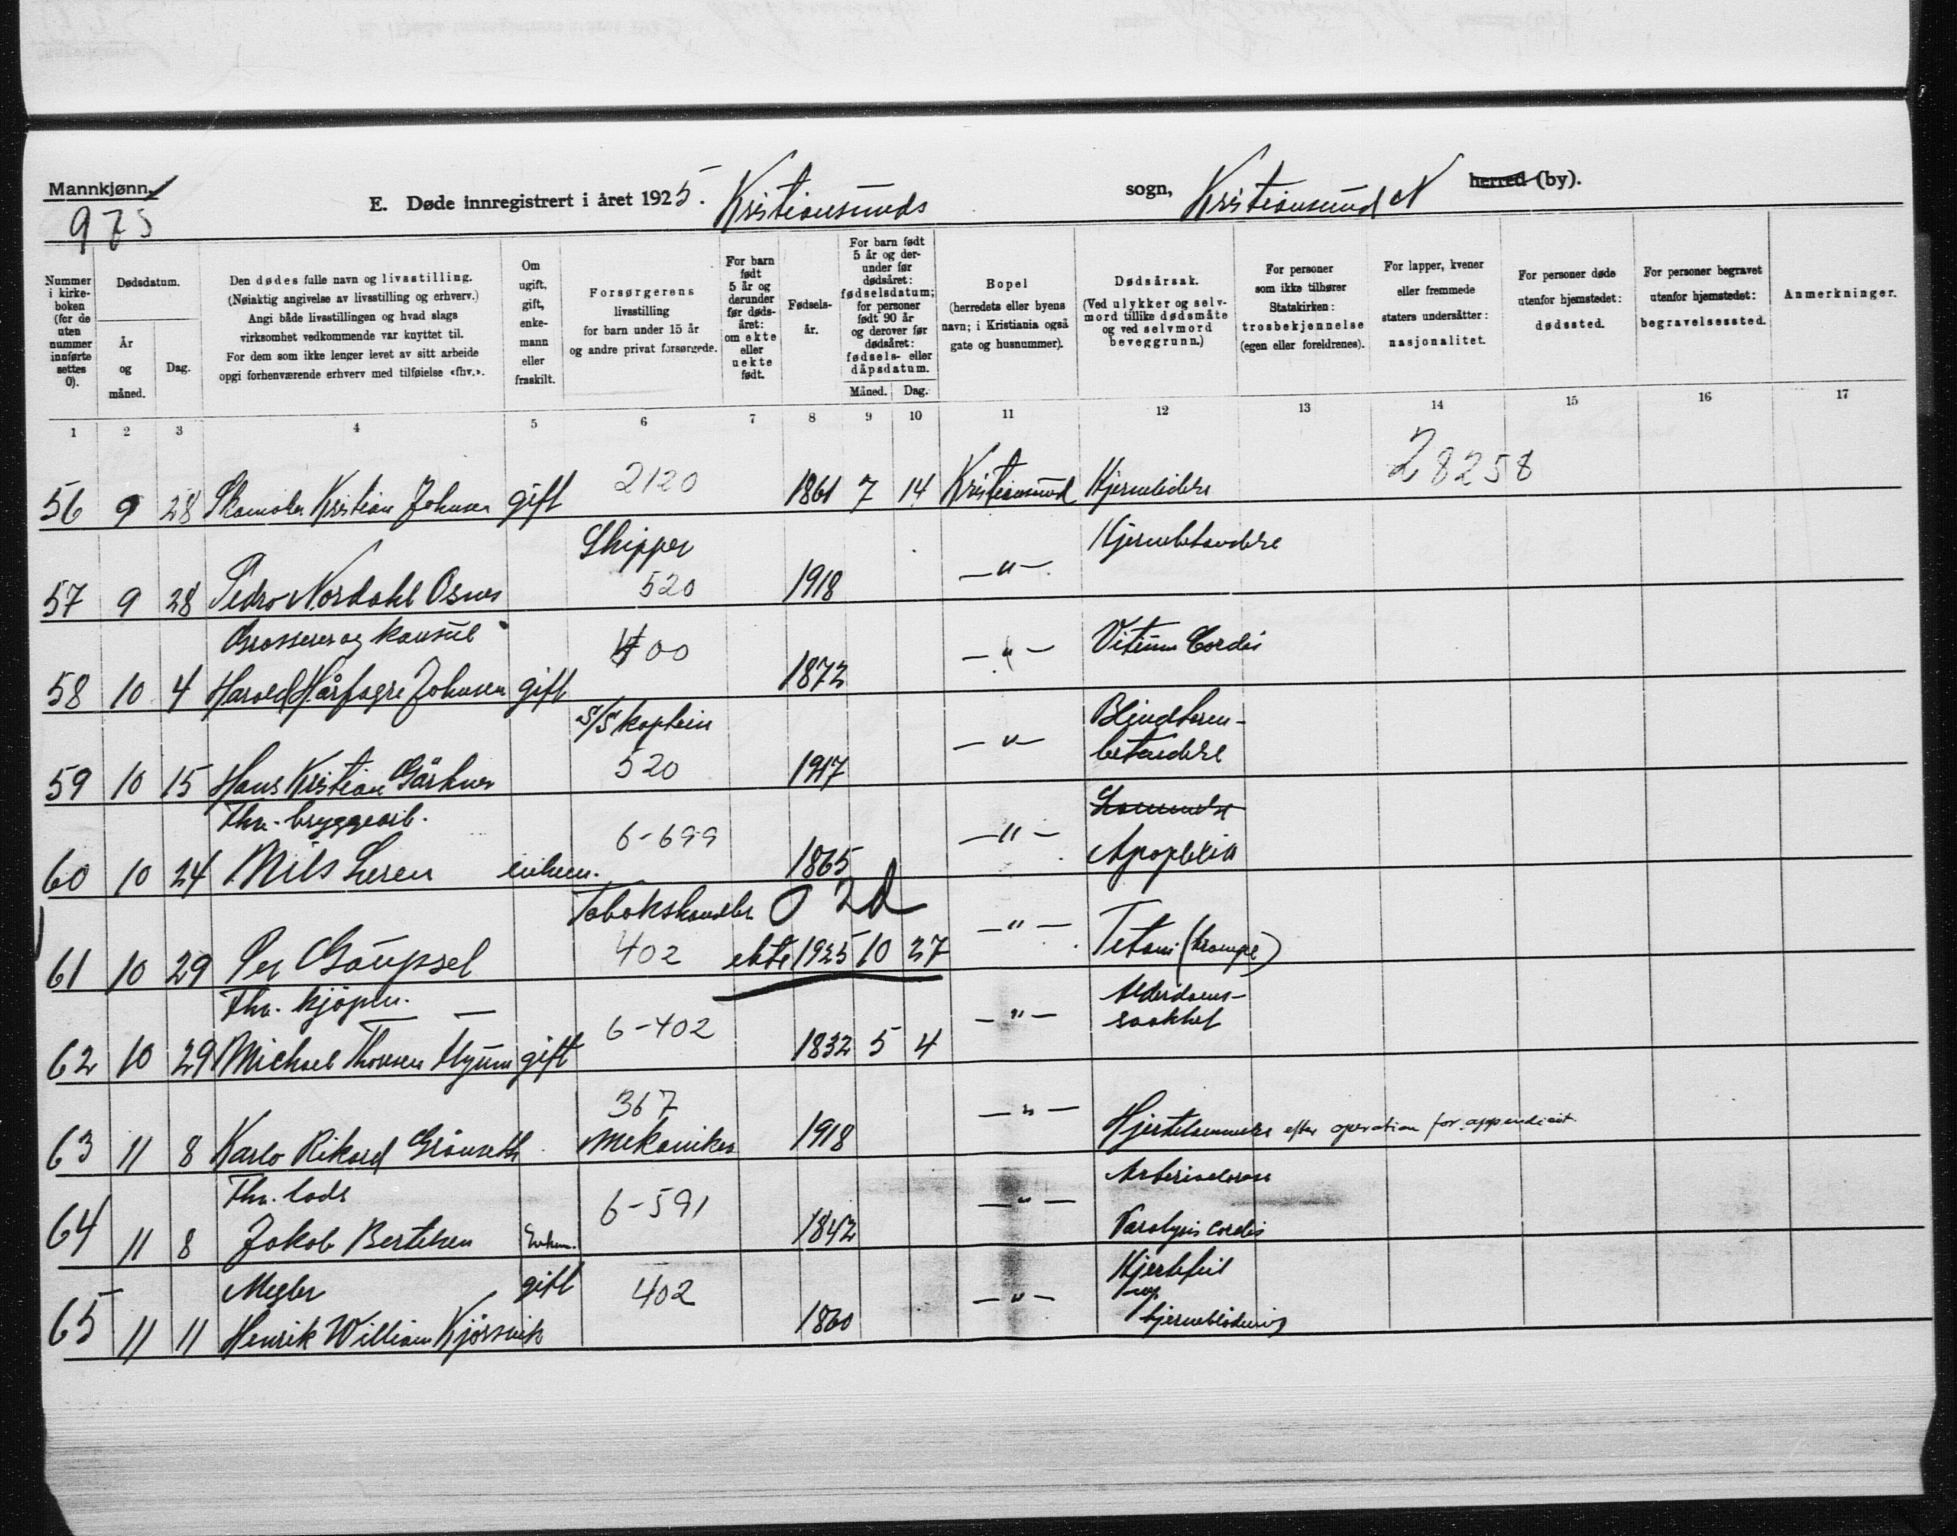 Mannkjønn.
975
E. Døde innregistrert i året 1925. Kristiansunds sogn, Kristiansund N herred (by).
Nummer i kirkeboken (for de uten nummer innførte settes 0).
Dødsdatum.
År og måned.
Dag.
Den dødes fulle navn og livsstilling. (Nøiaktig angivelse av livsstilling og erhverv.) Angi både livsstillingen og hvad slags virksomhet vedkommende var knyttet til. For dem som ikke lenger levet av sitt arbeide opgi forhenværende erhverv med tilføielse «fhv.».
Om ugift, gift, enkemann eller fraskilt.
Forsørgerens livsstilling for barn under 15 år og andre privat forsørgede.
For barn født 5 år og derunder før dødsåret: om ekte eller uekte født.
Fødselsår.
For barn født 5 år og derunder før dødsåret: fødselsdatum; for personer født 90 år og derover før dødsåret: fødsels- eller dåpsdatum.
Måned. Dag.
Bopel (herredets eller byens navn; i Kristiania også gate og husnummer).
Dødsårsak. (Ved ulykker og selvmord tillike dødsmåte og ved selvmord beveggrunn.)
For personer som ikke tilhører Statskirken: trosbekjennelse (egen eller foreldrenes).
For lapper, kvener eller fremmede staters undersåtter: nasjonalitet.
For personer døde utenfor hjemstedet: dødssted.
For personer begravet utenfor hjemstedet: begravelsessted.
Anmerkninger.
1 2 3 4 5 6 7 8 9 10 11 12 13 14 15 16 17
2120 28258
56 9 28 Kristian Johnsen gift 1861 7 14 Kristiansund
Skipper Hjernebetendelse
57 9 28 Pedro Nordahl Osnes 520 1918 —"—
Grosserer og konsul 400 Vitium Cordis
58 10 4 Harald Hårfagre Johnsen gift 1872 —"—
S/S kaptein Blindtarm-
59 10 15 Hans Kristian 520 1917 —"— betendelse
Fhv. bryggearb. 6-699
60 10 24 Nils Leren enkem. 1865 —"— Apoplexia
Tobakshandler 0 2d
61 10 29 Per Gaupset 402 ekte 1925 10 27 —"— Tetani (krampe)
Fhv. kjøpm. 6-402 Alderdoms-
62 10 29 Michael Thorsen gift 1832 5 4 —"— svakhet
367
63 11 8 Karlo Rikard Grønseth Mekaniker 1918 —"— Hjertelammelse efter operation for appendicit
Fhv. lods 6-591
64 11 8 Jakob Bertelsen Enkem. 1842 —"— Paralysis cordis
Megler gift 402 Hjertefeil
og
65 11 11 Henrik William Kjørsvik 1860 —"— hjerneblødning